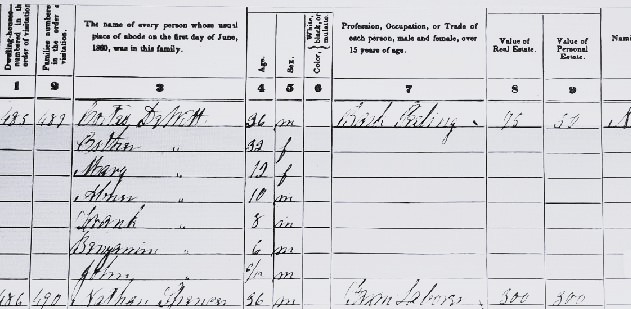 Dwelling-houses numbered in the order of visitation.
Families numbered in the order of visitation.
The name of every person whose usual place of abode on the first day of June, 1860, was in this family.
Age.
Sex.
Color, { White, black, or mulatto.
Profession, Occupation, or Trade of each person, male and female, over 15 years of age.
Value of Real Estate.
Value of Personal Estate.
1 2 3 4 5 6 7 8 9
485 489 DeWitt 36 m Bark 75 50
" f
Mary " 12 f
Abner " 10 m
Frank " 8 m
Benjamin " 6 m
John " m
486 490 Nathan 36 m Laborer 300 300